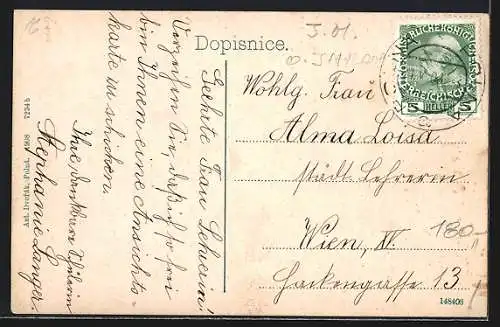 Dopisnice.
Geehrte Frau Lehrerin!
Verzeihen Sie, daß ich so frei
bin Ihnen eine Ansichts-
karte zu schicken.
Ihre dankbare Schülerin
Stephanie Langer.
Ant. Dvořák, Polná. 1908 7254b
J. 01.
Wohlg. Frau
Alma Loisa
städt. Lehrerin
Wien, XV.
Hackengasse 13
180-
148406
5 HELLER 5